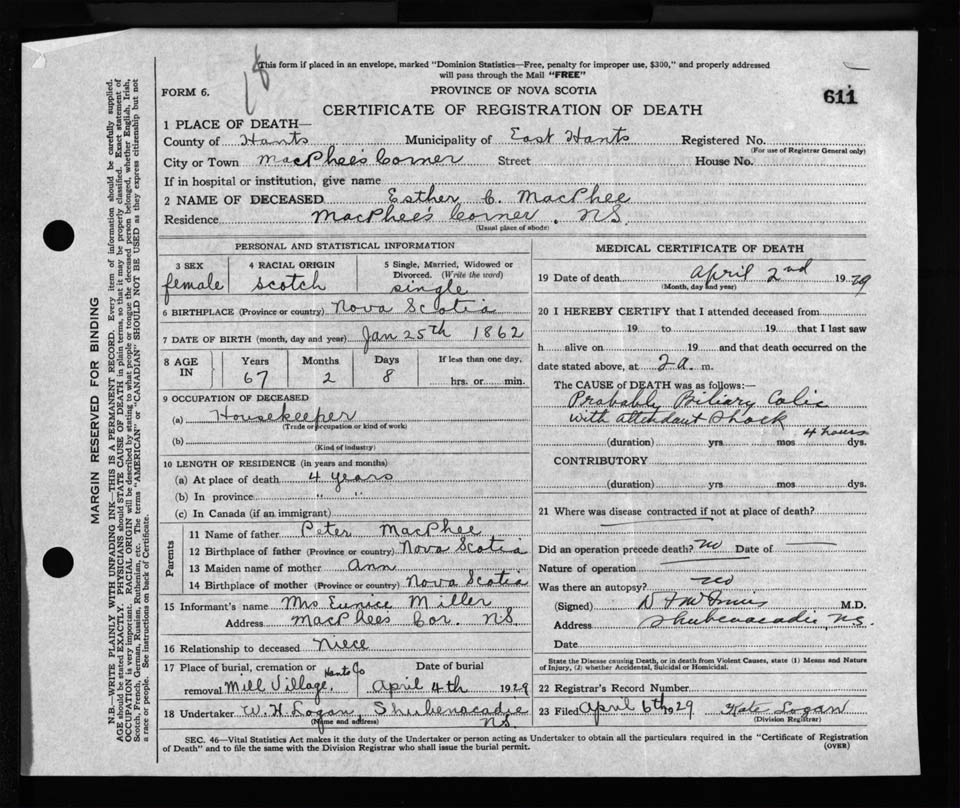 18
This form if placed in an envelope, marked "Dominion Statistics—Free, penalty for improper use, $300," and properly addressed
will pass through the Mail "FREE"
FORM 6.
PROVINCE OF NOVA SCOTIA
611
CERTIFICATE OF REGISTRATION OF DEATH
1 PLACE OF DEATH—
County of Hants Municipality of East Hants Registered No.
(For use of Registrar General only)
City or Town MacPhee's Corner Street House No.
If in hospital or institution, give name
2 NAME OF DECEASED Esther C. MacPhee
Residence MacPhee's Corner, N.S.
(Usual place of abode)
MARGIN RESERVED FOR BINDING
N.B.—WRITE PLAINLY WITH UNFADING INK—THIS IS A PERMANENT RECORD. Every item of information should be carefully supplied.
AGE should be stated EXACTLY. PHYSICIANS should STATE CAUSE OF DEATH in plain terms, so that it may be properly classified. Exact statement of
OCCUPATION is very important. RACIAL ORIGIN will be described by stating to what people or tongue the deceased person belonged, whether English, Irish,
Scotch, French, German, Russian, Ruthenian, etc. The terms "AMERICAN" or "CANADIAN" SHOULD NOT BE USED as they express citizenship but not
a race or people. See instructions on back of Certificate.
PERSONAL AND STATISTICAL INFORMATION
3 SEX
female
4 RACIAL ORIGIN
Scotch
5 Single, Married, Widowed or
Divorced. (Write the word)
single
6 BIRTHPLACE (Province or country) Nova Scotia
7 DATE OF BIRTH (month, day and year) Jan 25th 1862
8 AGE IN
Years Months Days If less than one day,
67 2 8 hrs. or min.
9 OCCUPATION OF DECEASED
(a) Housekeeper
(Trade or occupation or kind of work)
(b)
(Kind of industry)
10 LENGTH OF RESIDENCE (in years and months)
(a) At place of death 4 years
(b) In province " "
(c) In Canada (if an immigrant)
Parents
11 Name of father Peter MacPhee
12 Birthplace of father (Province or country) Nova Scotia
13 Maiden name of mother Ann
14 Birthplace of mother (Province or country) Nova Scotia
15 Informant's name Mrs Eunice Miller
Address MacPhees Cor. N.S.
16 Relationship to deceased Niece
17 Place of burial, cremation or Hants Co Date of burial
removal Mill Village, April 4th 1929
18 Undertaker W. H. Logan, Shubenacadie
(Name and address) N.S.
MEDICAL CERTIFICATE OF DEATH
19 Date of death April 2nd 1929
(Month, day and year)
20 I HEREBY CERTIFY that I attended deceased from
19 to 19 that I last saw
h alive on 19 and that death occurred on the
date stated above, at 2 a. m.
The CAUSE of DEATH was as follows:—
Probably Biliary Colic
with attendant Shock
4 hours
(duration) yrs. mos dys.
CONTRIBUTORY
(duration) yrs. mos. dys.
21 Where was disease contracted if not at place of death?
Did an operation precede death? no Date of
Nature of operation
Was there an autopsy? no
(Signed) M.D.
Address Shubenacadie N.S.
Date
State the Disease causing Death, or in death from Violent Causes, state (1) Means and Nature
of Injury, (2) whether Accidental, Suicidal or Homicidal.
22 Registrar's Record Number
23 Filed April 6th 1929 Kate Logan
(Division Registrar)
SEC. 46—Vital Statistics Act makes it the duty of the Undertaker or person acting as Undertaker to obtain all the particulars required in the "Certificate of Registration
of Death" and to file the same with the Division Registrar who shall issue the burial permit.
(OVER)